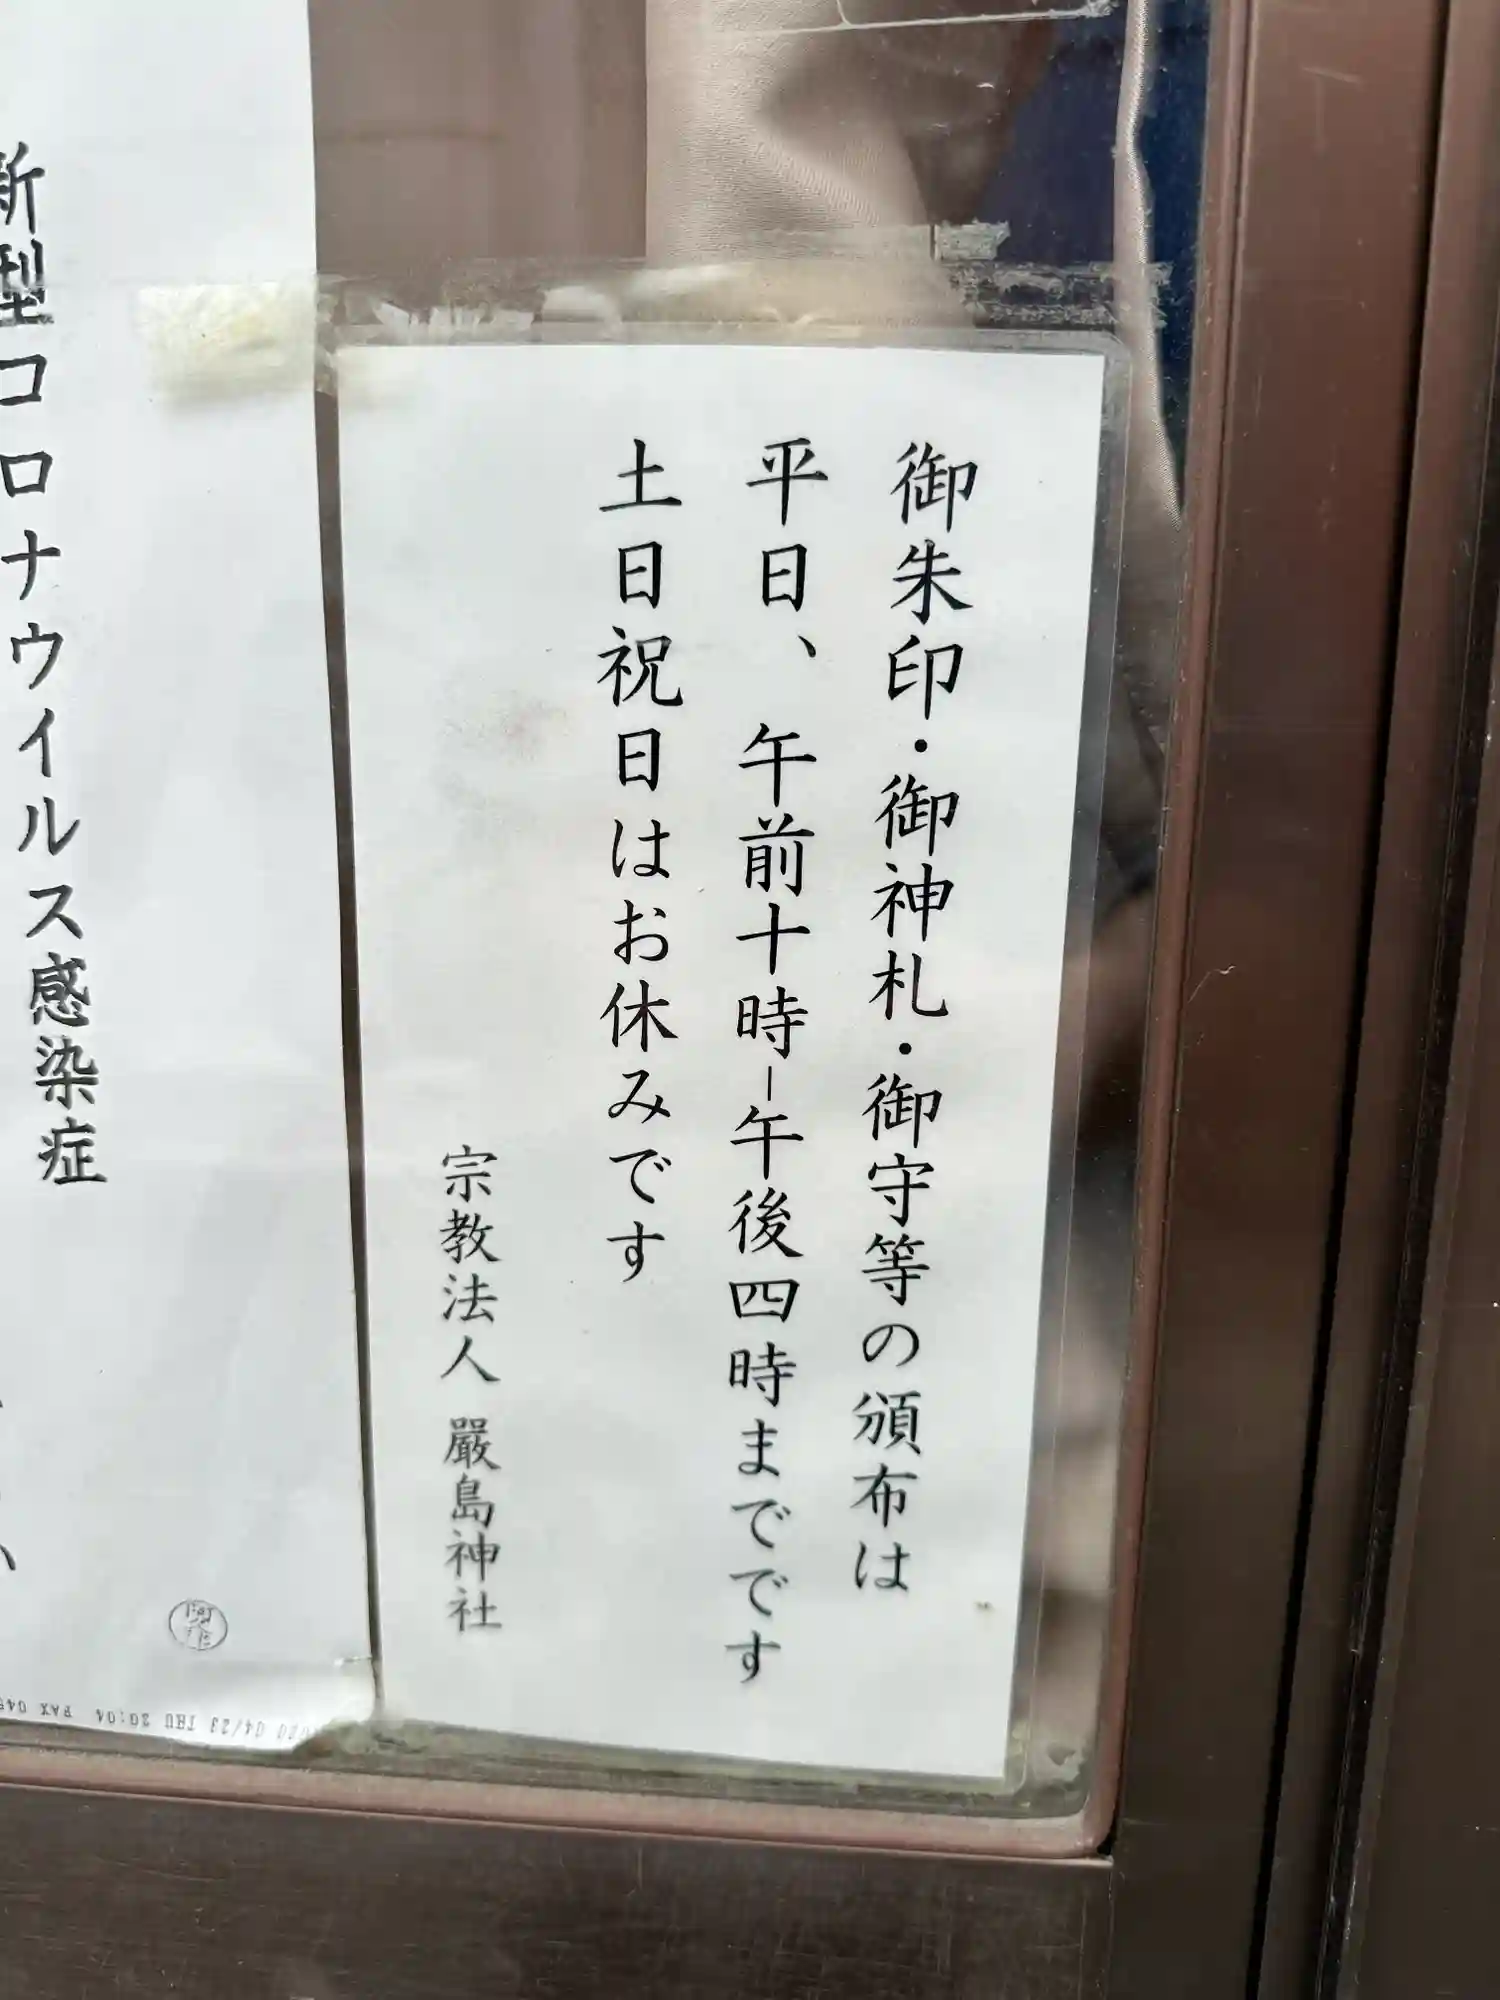 御朱印・御神札・御守等の頒布は
平日、午前十時-午後四時までです
土日祝日はお休みです
宗教法人 嚴島神社
新型コロナウイルス感染症
2020 04/23 THU 20:04 FAX 045